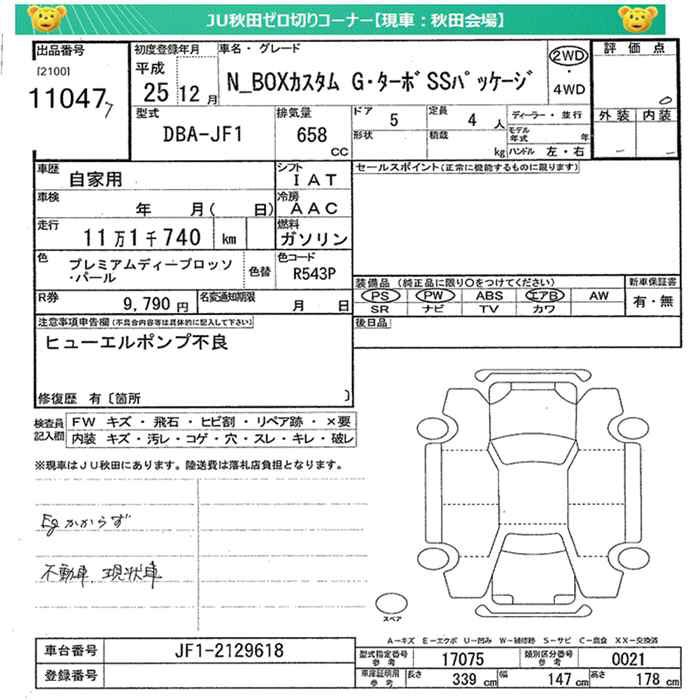 JU秋田ゼロ切りコーナー【現車：秋田会場】
出品番号 初度登録年月 車名・グレード 評価点
[2100] 平成
11047 25 12月 N_BOXカスタム G・ターボSSパッケージ 2WD・4WD 0
7
型式 排気量 ドア 5 定員 4人 ディーラー・並行 外装 内装
DBA-JF1 658 cc 形状 積載 kg モデル年式 年 ハンドル 左・右 － －
車歴 自家用 シフト IAT セールスポイント(正常に機能するものに限り)
車検 年 月( 日) 冷房 AAC
走行 11万1千740 km 燃料 ガソリン
色 プレミアムディープロッソ・パール 色替 色コード R543P
装備品 (純正品に限り○をつけてください) 新車保証書
R券 9,790円 名変通知期限 月 日 PS PW ABS エアB AW 有・無
SR ナビ TV カワ
注意事項申告欄(不具合内容等は具体的に記入して下さい) 後日品
ヒューエルポンプ不良
修復歴 有〔箇所 〕
検査員記入欄 FW キズ・飛石・ヒビ割・リペア跡・×要
内装 キズ・汚レ・コゲ・穴・スレ・キレ・破レ
※現車はJU秋田にあります。陸送費は落札店負担となります。
Egかからず
不動車、現状車
スペア
A－キズ E－エクボ U－凹み W－補修跡 S－サビ C－腐食 XX－交換済
車台番号 JF1-2129618 型式指定番号 参考 17075 類別区分番号 参考 0021
登録番号 車庫証明用 参考 長さ 339 cm 幅 147 cm 高さ 178 cm